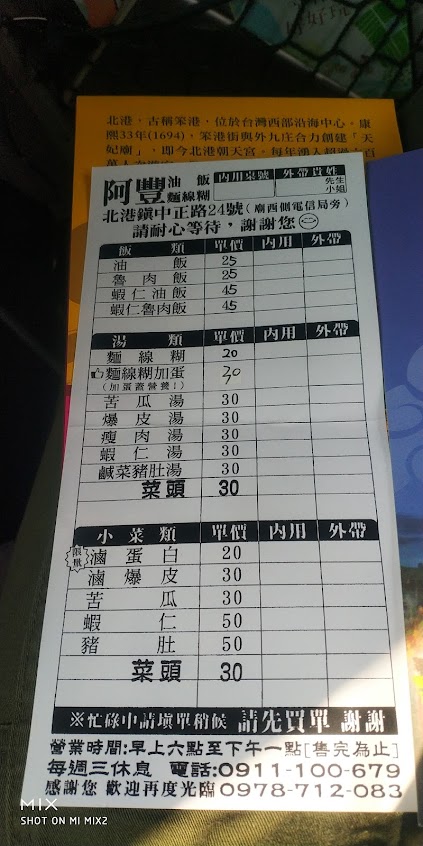 北港，古稱笨港，位於台灣西部沿海中心。康
熙33年(1694)，笨港街與外九庄合力創建「天
妃廟」，即今北港朝天宮。每年湧入超過六百
阿豐 油飯 麵線糊 內用桌號 外帶貴姓 先生 小姐
北港鎮中正路24號(廟西側電信局旁)
請耐心等待，謝謝您
飯類 單價 內用 外帶
油飯 25
魯肉飯 25
蝦仁油飯 45
蝦仁魯肉飯 45
湯類 單價 內用 外帶
麵線糊 20
麵線糊加蛋 30
(加蛋蓋營養!)
苦瓜湯 30
爆皮湯 30
瘦肉湯 30
蝦仁湯 30
鹹菜豬肚湯 30
菜頭 30
小菜類 單價 內用 外帶
限量 滷蛋白 20
滷爆皮 30
苦瓜 30
蝦仁 50
豬肚 50
菜頭 30
※忙碌中請填單稍候 請先買單 謝謝
營業時間:早上六點至下午一點[售完為止]
每週三休息 電話:0911-100-679
感謝您 歡迎再度光臨 0978-712-083
MIX
SHOT ON MI MIX2